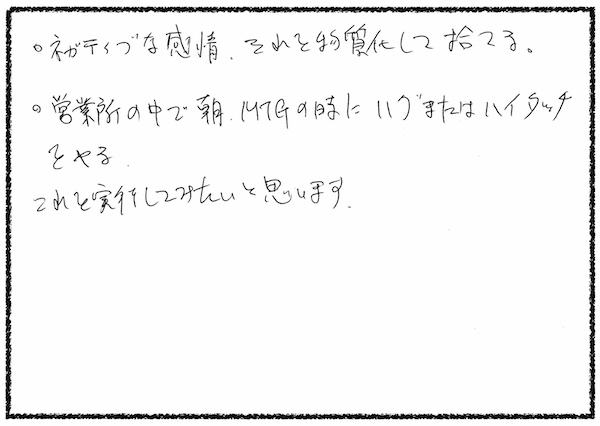 ○ ネガティブな感情、それを物質化して捨てる。
○ 営業所の中で朝、MTGの時にハグまたはハイタッチ
をやる、
これを実行してみたいと思います、